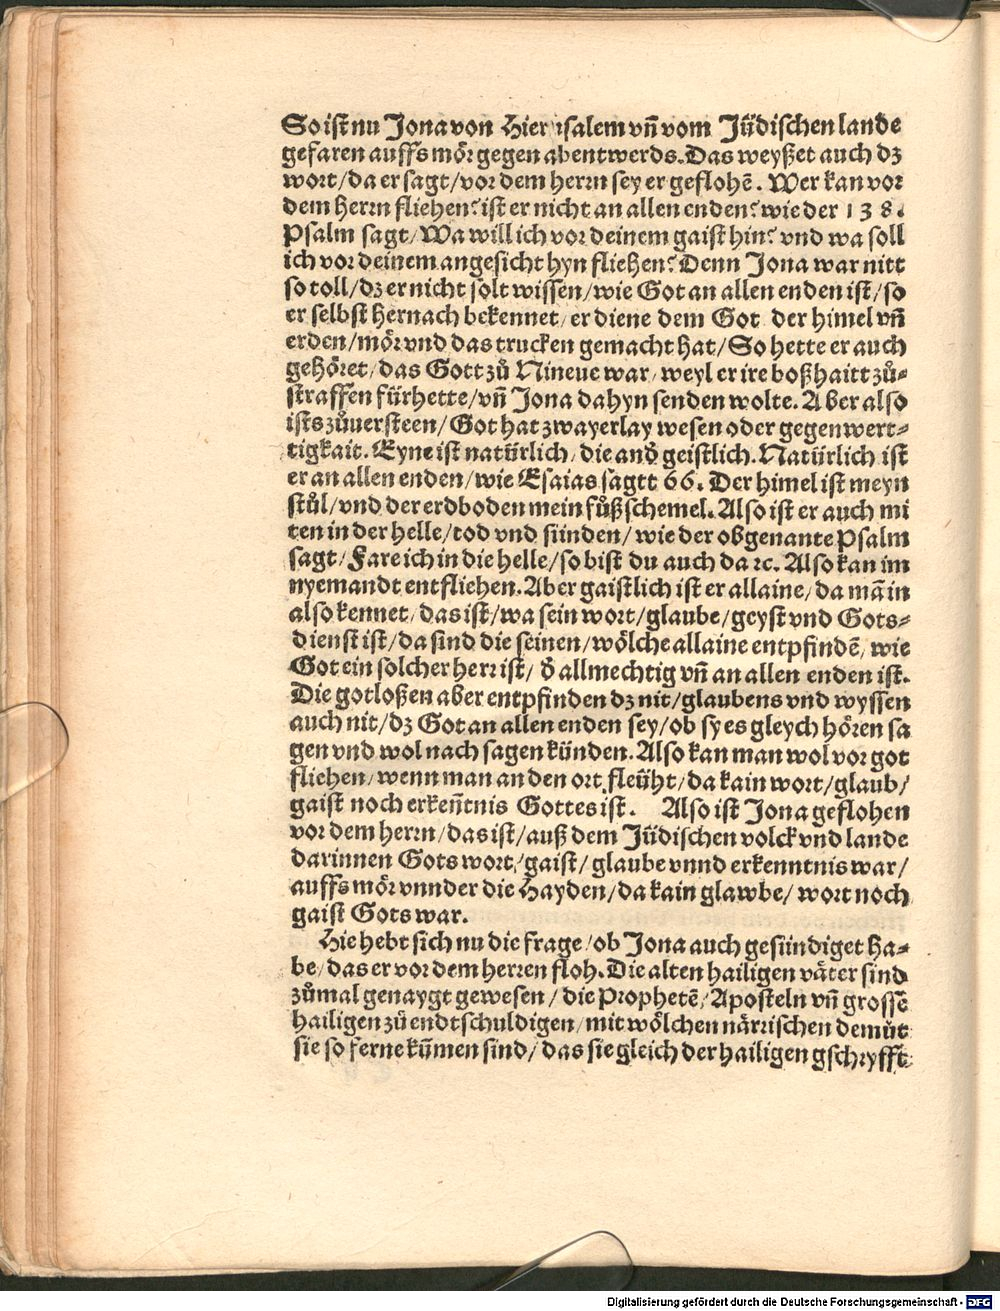 So ist nu Jona von Hierusalem vñ vom Jüdischen lande
gefaren auffs mör gegen abentwerds. Das weyßet auch dz
wort/ da er sagt/ vor dem herrn sey er geflohẽ. Wer kan vor
dem herrn fliehen? ist er nicht an allen enden? wie der 138.
Psalm sagt/ Wa will ich vor deinem gaist hin? vnd wa soll
ich vor deinem angesicht hyn fliehen? Denn Jona war nitt
so toll/ dz er nicht solt wissen/ wie Got an allen enden ist/ so
er selbst hernach bekennet/ er diene dem Got der himel vñ
erden/ mör vnd das trucken gemacht hat/ So hette er auch
gehöret/ das Gott zů Nineue war/ weyl er ire boßhaitt zů-
straffen fürhette/ vñ Jona dahyn senden wolte. Aber also
ists zůuersteen/ Got hat zwayerlay wesen oder gegenwert-
tigkait. Eyne ist natürlich/ die and̕ geistlich. Natürlich ist
er an allen enden/ wie Esaias sagtt 66. Der himel ist meyn
stůl/ vnd der erdboden mein fůßschemel. Also ist er auch mi
ten in der helle/ tod vnd sünden/ wie der obgenante Psalm
sagt/ Fare ich in die helle/ so bist du auch da ꝛc. Also kan im
nyemandt entfliehen. Aber gaistlich ist er allaine/ da mã in
also kennet/ das ist/ wa sein wort/ glaube/ geyst vnd Gots-
dienst ist/ da sind die seinen/ wölche allaine entpfindẽ/ wie
Got ein solcher herr ist/ d̕ allmechtig vñ an allen enden ist.
Die gotloßen aber entpfinden dz nit/ glaubens vnd wyssen
auch nit/ dz Got an allen enden sey/ ob sy es gleych hören sa
gen vnd wol nach sagen künden. Also kan man wol vor got
fliehen/ wenn man an den ort fleüht/ da kain wort/ glaub/
gaist noch erkeñtnis Gottes ist. Also ist Jona geflohen
vor dem herrn/ das ist/ auß dem Jüdischen volck vnd lande
darinnen Gots wort/ gaist/ glaube vnnd erkenntnis war/
auffs mör vnnder die Hayden/ da kain glawbe/ wort noch
gaist Gots war.
Hie hebt sich nu die frage/ ob Jona auch gesündiget ha-
be/ das er vor dem herren floh. Die alten hailigen väter sind
zůmal genaygt gewesen/ die Prophetẽ/ Aposteln vñ grosse
hailigen zů endtschuldigen/ mit wölchen närrischen demůt
sie so ferne kũmen sind/ das sie gleich der hailigen gschryfft
Digitalisierung gefördert durch die Deutsche Forschungsgemeinschaft - DFG